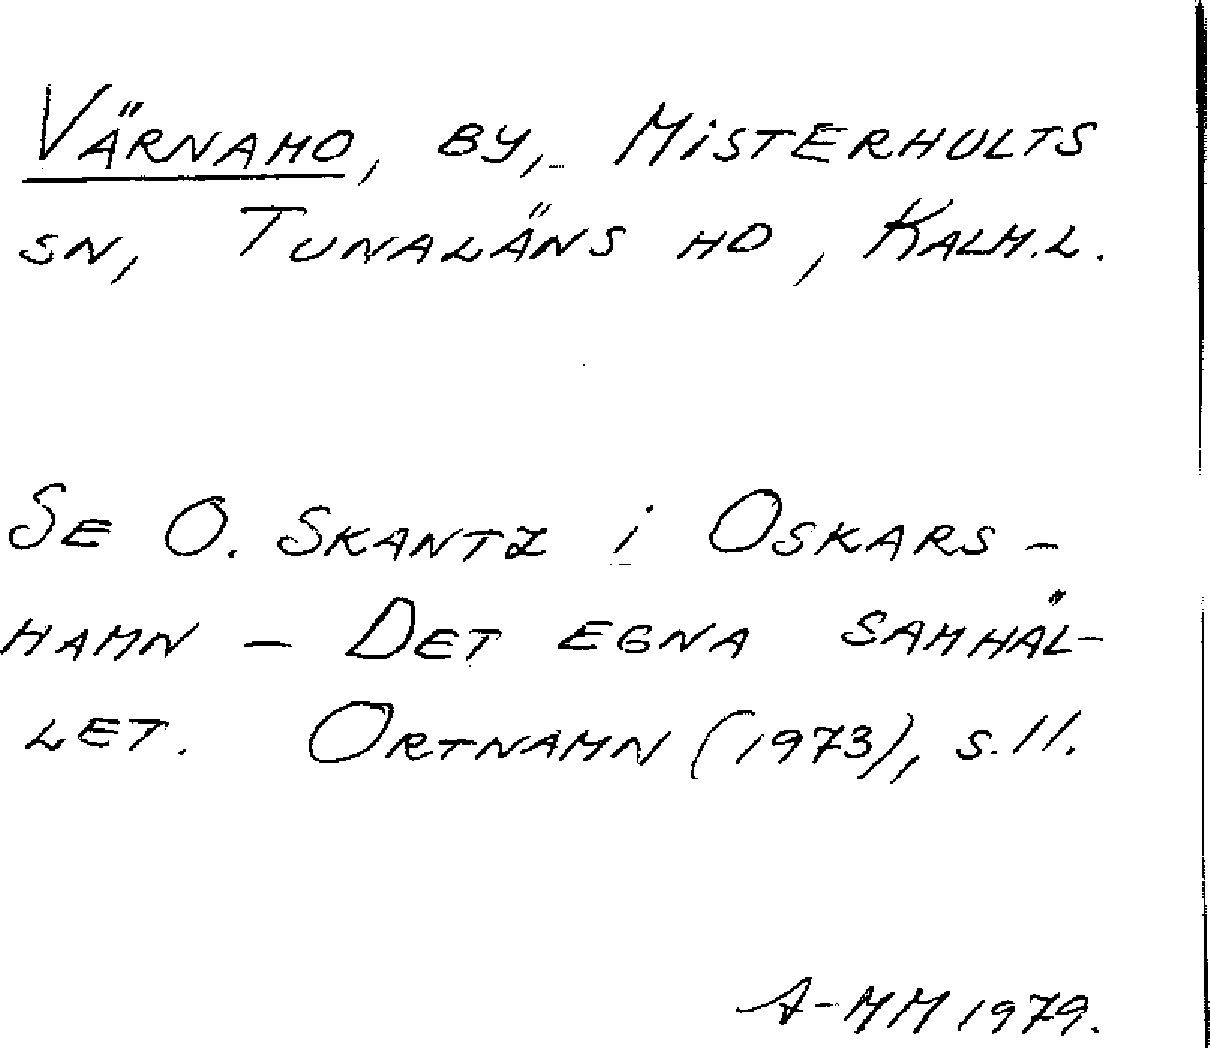 VÄRNAMO, BY, MISTERHULTS
SN, TUNALÄNS HD, KALM.L.
SE O. SKANTZ i OSKARS-
HAMN - DET EGNA SAMHÄL-
LET. ORTNAMN (1973), S. 11.
A-MM 1979.